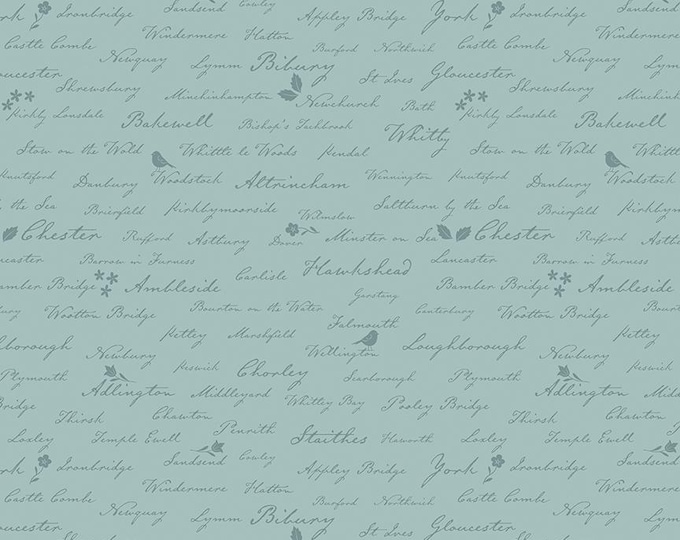 Sandsend Cowley
York Ironbridge Appley Bridge York Ironbridge
Castle Combe Windermere Hatton Burford Northwich Castle Combe Windermere
Gloucester Newquay Lymm Bibury St Ives Gloucester Newquay Lymm
Shrewsbury Minchinhampton Newchurch Bath Shrewsbury Minchinhampton
Kirkby Lonsdale Bakewell Bishop's Tachbrook Whitby Kirkby Lonsdale Bakewell
Stow on the Wold Whittle le Woods Kendal Stow on the Wold Whittle
Knutsford Danbury Woodstock Altrincham Wennington Knutsford Danbury Woodstock
by the Sea Brierfield Kirkbymoorside Wilmslow Saltburn by the Sea Brierfield
Chester Rufford Astbury Dover Minster on Sea Chester Rufford Astbury
Lancaster Barrow in Furness Carlisle Hawkshead Lancaster Barrow in Furness
Bamber Bridge Ambleside Garstang Bamber Bridge Ambleside
Wootton Bridge Bourton on the Water Canterbury Wootton Bridge
Loughborough Ketley Marshfield Falmouth Loughborough Ketley
Newbury Keswick Wellington Newbury Keswick
Plymouth Chorley Scarborough Plymouth
Adlington Middleyard Whitley Bay Pooley Bridge Adlington
Bridge Thirsk Chawton Thirsk Chawton
Loxley Temple Ewell Penrith Staithes Haworth Loxley Temple Ewell
York Ironbridge Sandsend Cowley Appley Bridge York Ironbridge Sandsend
Castle Combe Windermere Hatton Burford Northwich Castle Combe Windermere
Gloucester Newquay Lymm Bibury St Ives Gloucester Newquay Lymm